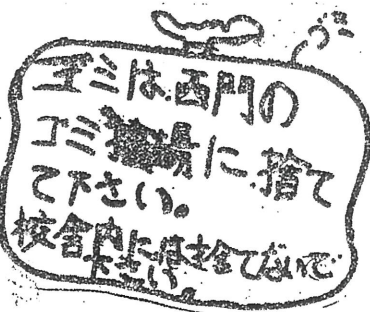 ゴミは西門の
ゴミ捨場に捨て
て下さい。
校舎内には捨てないで
下さい。